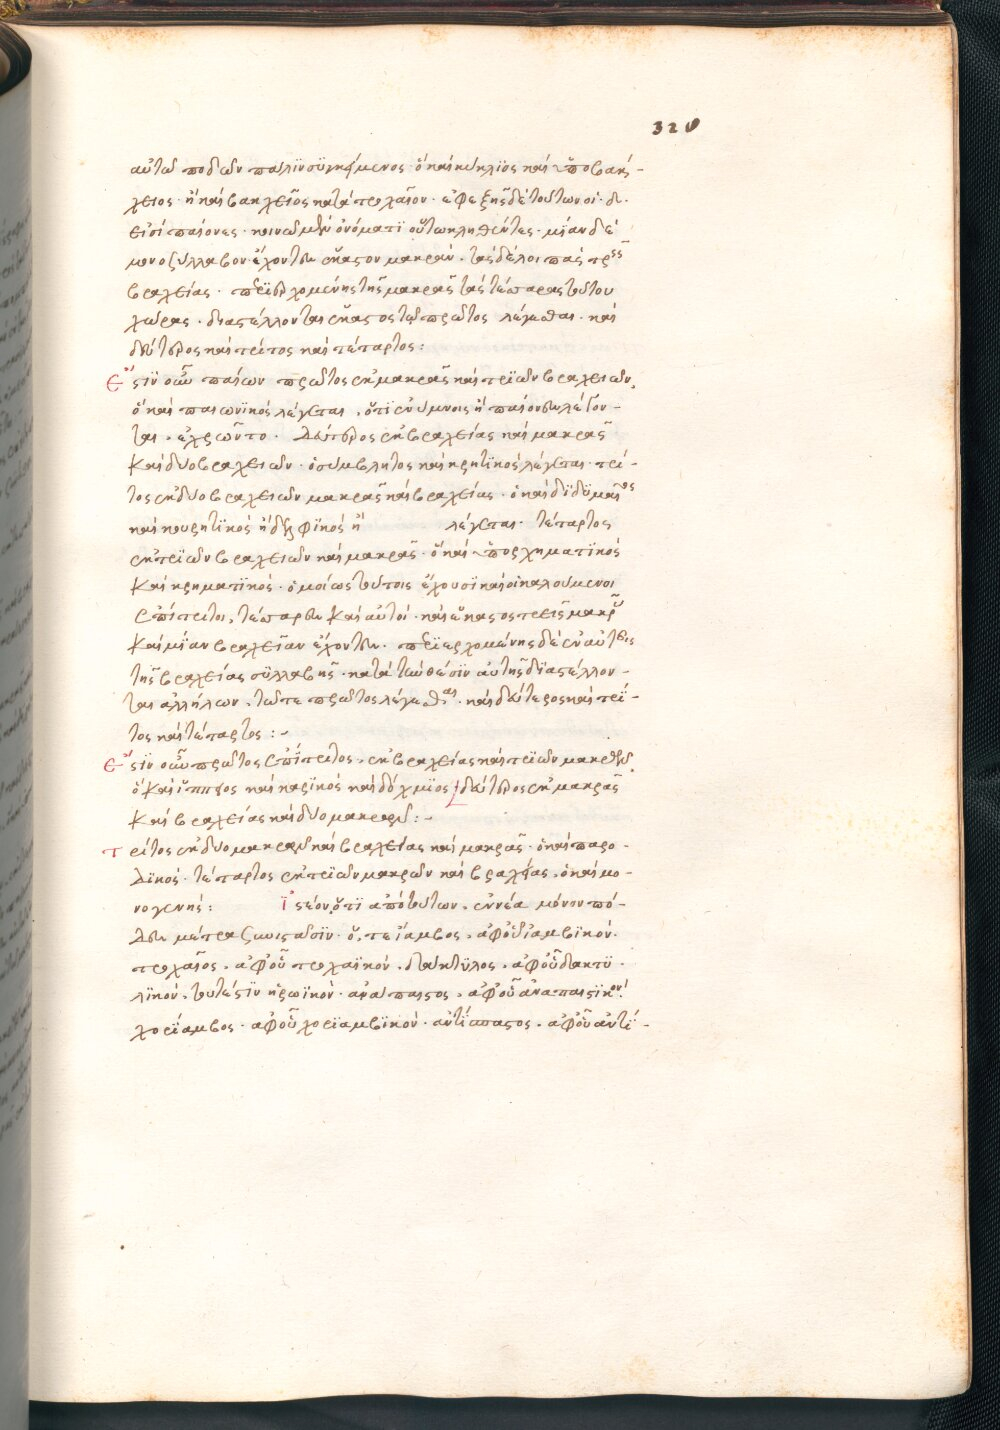 320
αὐτῶ ποδῶν πάλιν συγκείμενος· ὃ καὶ κηλίος καὶ ὑποβακ-
χειος· ἢ καὶ βακχεῖος κατὰ τροχαῖον· ἐφεξῆς δὲ τούτων οἱ δ.
εἰσὶ παίονες· κοινῶ μὲν ὀνόματι οὕτω κληθέντες· μίαν δὲ
μονοξύλλαβον ἔχοντες ἕκαστον μακράν· τὰς δὲ λοιπὰς τρεῖς
βραχείας· περιερχομένης τῆς μακρᾶς τὰς τέσσαρας τούτου
χώρας· διαστέλλονται ἕκαστος τῶ πρῶτος λέγεσθαι· καὶ
δεύτερος καὶ τρίτος καὶ τέταρτος:
Ἔστιν οὖν παίων πρῶτος ἐκ μακρᾶς καὶ τριῶν βραχειῶν,
ὃ καὶ παιωνικὸς λέγεται, ὅτι ἐν ὕμνοις ἢ παίονες λέγον-
ται, ἐχρῶντο. Δεύτερος ἐκ βραχείας καὶ μακρᾶς
καὶ δύο βραχειῶν· ὁ σύμβλητος καὶ κρητικὸς λέγεται· τρί-
τος ἐκ δύο βραχειῶν μακρᾶς καὶ βραχείας· ὁ καὶ διδυμαῖος
καὶ κουρητικὸς ἢ δελφικὸς ἢ λέγεται· τέταρτος
ἐκ τριῶν βραχειῶν καὶ μακρᾶς· ὃ καὶ ὑπορχηματικὸς
καὶ κρηματικός· ὁμοίως τούτοις ἔχουσι καὶ οἱ καλούμενοι
ἐπίτριτοι, τέσσαρες καὶ αὐτοί· καὶ ἕκαστος τρεῖς μακρὰς
καὶ μίαν βραχεῖαν ἔχοντες· περιερχομένης δὲ ἐν αὐτοῖς
τῆς βραχείας συλλαβῆς· κατὰ τὴν θέσιν αὐτῆς διαστέλλον-
ται ἀλλήλων· τῶ τε πρῶτος λέγεσθαι· καὶ δεύτερος καὶ τρί-
τος καὶ τέταρτος:-
Ἔστιν οὖν πρῶτος ἐπίτριτος, ἐκ βραχείας καὶ τριῶν μακρῶν,
ὃ καὶ ἵππιος καὶ καρικὸς καὶ δόχμιος δεύτερος ἐκ μακρᾶς
καὶ βραχείας καὶ δύο μακρῶν:-
Τρίτος ἐκ δύο μακρῶν καὶ βραχείας καὶ μακρᾶς· ὁ καὶ παρο-
δικός· τέταρτος ἐκ τριῶν μακρῶν καὶ βραχείας, ὁ καὶ μο-
νογενής: ἰστέον, ὅτι ἀπὸ τούτων, ἐννέα μόνον πό-
δες μέτρα ζωιστῶσιν· ὅ, τε ἴαμβος, ἀφ' οὗ ἰαμβικόν·
τροχαῖος, ἀφ' οὗ τροχαϊκόν· δάκτυλος, ἀφ' οὗ δακτυ-
λικόν, τουτέστιν ἡρωϊκόν· ἀνάπαιστος, ἀφ' οὗ ἀναπαιστικόν·
χορίαμβος· ἀφ' οὗ χοριαμβικόν· ἀντίσπαστος, ἀφ' οὗ ἀντι-